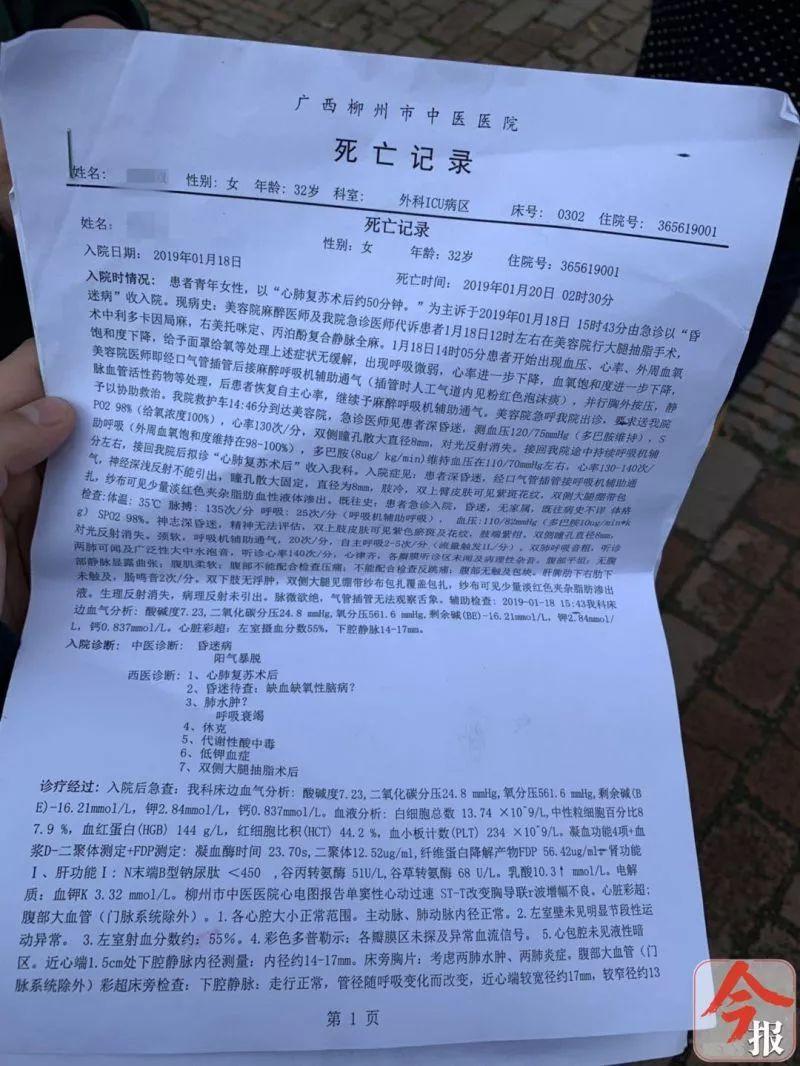 广西柳州市中医医院
死亡记录
姓名: 性别: 女 年龄: 32岁 科室: 外科ICU病区 床号: 0302 住院号: 365619001
死亡记录
姓名: 性别: 女 年龄: 32岁 住院号: 365619001
入院日期: 2019年01月18日 死亡时间: 2019年01月20日 02时30分
入院时情况: 患者青年女性, 以“心肺复苏术后约50分钟。”为主诉于2019年01月18日 15时43分由急诊以“昏
迷病”收入院。现病史: 美容院麻醉医师及我院急诊医师代诉患者1月18日12时左右在美容院行大腿抽脂手术,
术中利多卡因局麻, 右美托咪定、丙泊酚复合静脉全麻。1月18日14时05分患者开始出现血压、心率、外周血氧
饱和度下降, 给予面罩给氧等处理上述症状无缓解, 出现呼吸微弱, 心率进一步下降, 血氧饱和度进一步下降,
美容院医师即经口气管插管后接麻醉呼吸机辅助通气(插管时人工气道内见粉红色泡沫痰), 并行胸外按压, 静
脉血管活性药物等处理, 后患者恢复自主心率, 继续予麻醉呼吸机辅助通气。美容院急呼我院出诊, 要求送我院
予以协助救治。我院救护车14:46分到达美容院, 急诊医师见患者深昏迷, 测血压120/75mmHg(多巴胺维持), S
PO2 98%(给氧浓度100%), 心率130次/分, 双侧瞳孔散大直径8mm, 对光反射消失。接回我院途中持续呼吸机
辅助呼吸(外周血氧饱和度维持在98-100%), 多巴胺(8ug/ kg/min)维持血压在110/70mmHg左右, 心率130-140次/
分左右, 接回我院后拟诊“心肺复苏术后”收入我科。入院症见: 患者深昏迷, 经口气管插管接呼吸机辅助通
气, 神经深浅反射不能引出, 瞳孔散大固定, 直径为8mm, 肢冷, 双上臂皮肤可见紫斑花纹, 双侧大腿绷带包
扎, 纱布可见少量淡红色夹杂脂肪血性液体渗出。既往史: 患者急诊入院, 昏迷, 无家属, 既往病史不详 体格
检查:体温: 35℃ 脉搏: 135次/分 呼吸: 25次/分(呼吸机辅助呼吸), 血压:110/82mmHg(多巴胺10ug/min*k
g) SPO2 98%。神志深昏迷, 精神无法评估, 双上肢皮肤可见紫色瘀斑及花纹, 肢端紫绀, 双侧瞳孔直径8mm,
对光反射消失。颈软, 呼吸机辅助通气, 20次/分, 自主呼吸2-5次/分(流量触发1L/分), 双肺呼吸音粗, 听诊
两肺可闻及广泛性大中水泡音, 听诊心率140次/分, 心律齐, 各瓣膜听诊区未闻及病理性杂音。腹部平坦: 无腹
部静脉显露曲张; 腹肌柔软; 腹部不能配合检查压痛; 不能配合检查反跳痛; 腹部无触及包块。肝脾肋下右肋下
未触及, 肠鸣音2次/分。双下肢无浮肿, 双侧大腿见绷带纱布包扎覆盖包扎, 纱布可见少量淡红色夹杂脂肪渗出
液。生理反射消失, 病理反射未引出。脉微欲绝, 气管插管无法观察舌象。辅助检查: 2019-01-18 15:43我科床
边血气分析: 酸碱度7.23,二氧化碳分压24.8 mmHg,氧分压561.6 mmHg,剩余碱(BE)-16.21mmol/L, 钾2.84mmol/
L, 钙0.837mmol/L。心脏彩超: 左室摄血分数55%, 下腔静脉14-17mm。
入院诊断: 中医诊断: 昏迷病
阳气暴脱
西医诊断: 1、心肺复苏术后
2、昏迷待查: 缺血缺氧性脑病?
3、肺水肿?
呼吸衰竭
4、休克
5、代谢性酸中毒
6、低钾血症
7、双侧大腿抽脂术后
诊疗经过: 入院后急查: 我科床边血气分析: 酸碱度7.23,二氧化碳分压24.8 mmHg,氧分压561.6 mmHg,剩余碱(B
E)-16.21mmol/L, 钾2.84mmol/L, 钙0.837mmol/L。血液分析: 白细胞总数 13.74 ×10^9/L,中性粒细胞百分比8
7.9 %, 血红蛋白(HGB) 144 g/L, 红细胞比积(HCT) 44.2 %, 血小板计数(PLT) 234 ×10^9/L。凝血功能4项+血
浆D-二聚体测定+FDP测定: 凝血酶时间 23.70s,二聚体12.52ug/ml,纤维蛋白降解产物FDP 56.42ug/ml 肾功能
Ⅰ、肝功能Ⅰ: N末端B型钠尿肽 <450 ,谷丙转氨酶 51U/L,谷草转氨酶 68 U/L。乳酸10.3↑ mmol/L。电解
质: 血钾K 3.32 mmol/L。柳州市中医医院心电图报告单窦性心动过速 ST-T改变胸导联r波增幅不良。心脏彩超;
腹部大血管(门脉系统除外)。1.各心腔大小正常范围。主动脉、肺动脉内径正常。2.左室壁未见明显节段性运
动异常。 3.左室射血分数约: 55%。4.彩色多普勒示: 各瓣膜区未探及异常血流信号。 5.心包腔未见液性暗
区。近心端1.5cm处下腔静脉内径测量: 内径约14-17mm。床旁胸片: 考虑两肺水肿、两肺炎症。腹部大血管(门
脉系统除外)彩超床旁检查: 下腔静脉: 走行正常, 管径随呼吸变化而改变, 近心端较宽径约17mm, 较窄径约13
第 1 页
今报